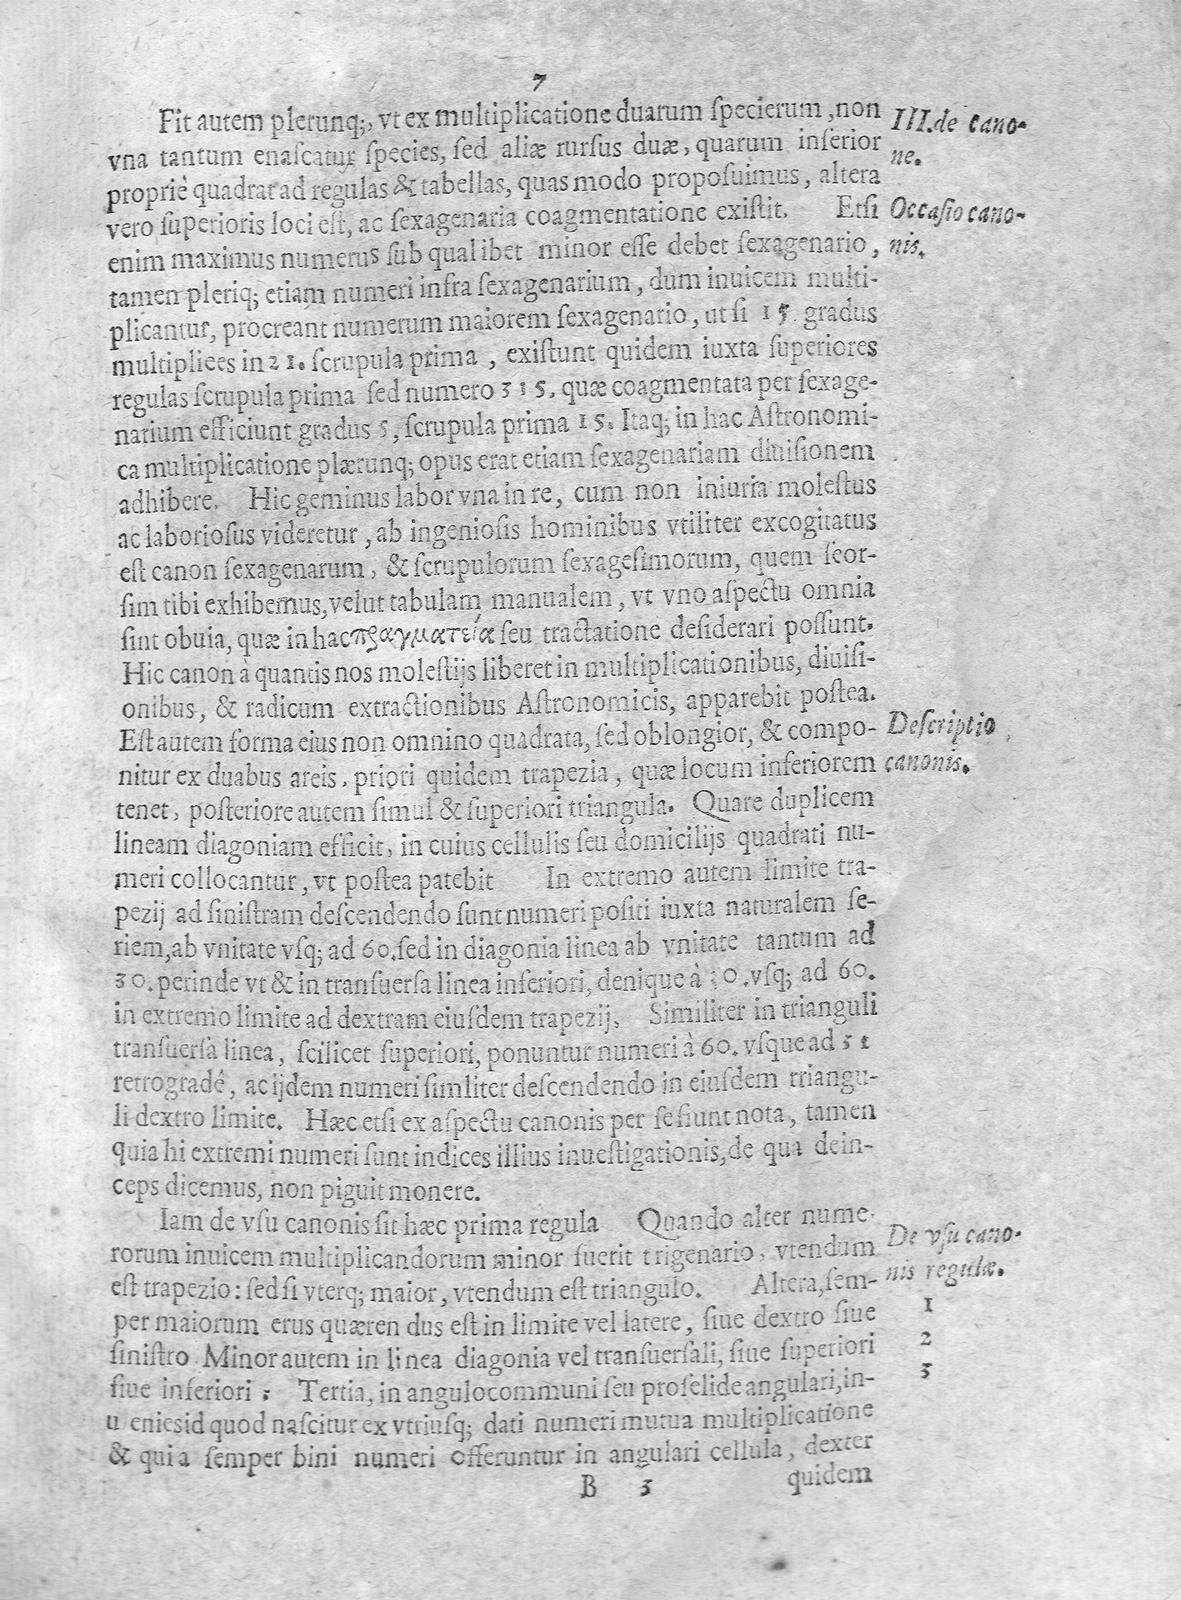 7
Fit autem plerunq;, vt ex multiplicatione duarum ſpecierum ,non
III.de cano-
vna tantum enaſcatur ſpecies, ſed aliæ rurſus duæ, quarum inferior
ne.
propriè quadrat ad regulas & tabellas, quas modo propoſuimus, altera
vero ſuperioris loci eſt, ac ſexagenaria coagmentatione exiſtit. Etſi
Occaſio cano-
enim maximus numerus ſub qualibet minor eſſe debet ſexagenario,
nis.
tamen pleriq; etiam numeri infra ſexagenarium, dum inuicem multi-
plicantur, procreant numerum maiorem ſexagenario, ut ſi 15. gradus
multiplices in 21. ſcrupula prima , exiſtunt quidem iuxta ſuperiores
regulas ſcrupula prima ſed numero 315. quæ coagmentata per ſexage-
narium efficiunt gradus 5, ſcrupula prima 15. Itaq; in hac Aſtronomi-
ca multiplicatione plærunq; opus erat etiam ſexagenariam diuiſionem
adhibere. Hic geminus labor vna in re, cum non iniuria moleſtus
ac laborioſus videretur, ab ingenioſis hominibus vtiliter excogitatus
eſt canon ſexagenarum, & ſcrupulorum ſexageſimorum, quem ſeor-
ſim tibi exhibemus, velut tabulam manualem, vt vno aſpectu omnia
ſint obuia, quæ in hac πραγματεία ſeu tractatione deſiderari poſſunt.
Hic canon à quantis nos moleſtijs liberet in multiplicationibus, diuiſi-
onibus, & radicum extractionibus Aſtronomicis, apparebit poſtea.
Eſt autem forma eius non omnino quadrata, ſed oblongior, & compo-
Deſcriptio
nitur ex duabus areis, priori quidem trapezia, quæ locum inferiorem
canonis.
tenet, poſteriore autem ſimul & ſuperiori triangula. Quare duplicem
lineam diagoniam efficit, in cuius cellulis ſeu domicilijs quadrati nu-
meri collocantur, vt poſtea patebit In extremo autem limite tra-
pezij ad ſiniſtram deſcendendo ſunt numeri poſiti iuxta naturalem ſe-
riem, ab vnitate vſq; ad 60. ſed in diagonia linea ab vnitate tantum ad
30. perinde vt & in tranſuerſa linea inferiori, denique à 30. vſq; ad 60.
in extremo limite ad dextram eiuſdem trapezij. Similiter in trianguli
tranſuerſa linea, ſcilicet ſuperiori, ponuntur numeri à 60. vſque ad 31
retrogradé, ac ijdem numeri ſimliter deſcendendo in eiuſdem triangu-
li dextro limite. Hæc etſi ex aſpectu canonis per ſe fiunt nota, tamen
quia hi extremi numeri ſunt indices illius inueſtigationis, de qua dein-
ceps dicemus, non piguit monere.
Iam de vſu canonis ſit hæc prima regula Quando alter nume-
De vſu cano-
rorum inuicem multiplicandorum minor fuerit trigenario, vtendum
nis regulæ.
eſt trapezio: ſed ſi vterq; maior, vtendum eſt triangulo. Altera, ſem-
1
per maiorum erus quæren dus eſt in limite vel latere, ſiue dextro ſiue
2
ſiniſtro Minor autem in linea diagonia vel tranſuerſali, ſiue ſuperiori
3
ſiue inferiori ; Tertia, in angulo communi ſeu proſelide angulari, in-
u eniesid quod naſcitur ex vtriuſq; dati numeri mutua multiplicatione
& quia ſemper bini numeri offeruntur in angulari cellula, dexter
B 3
quidem